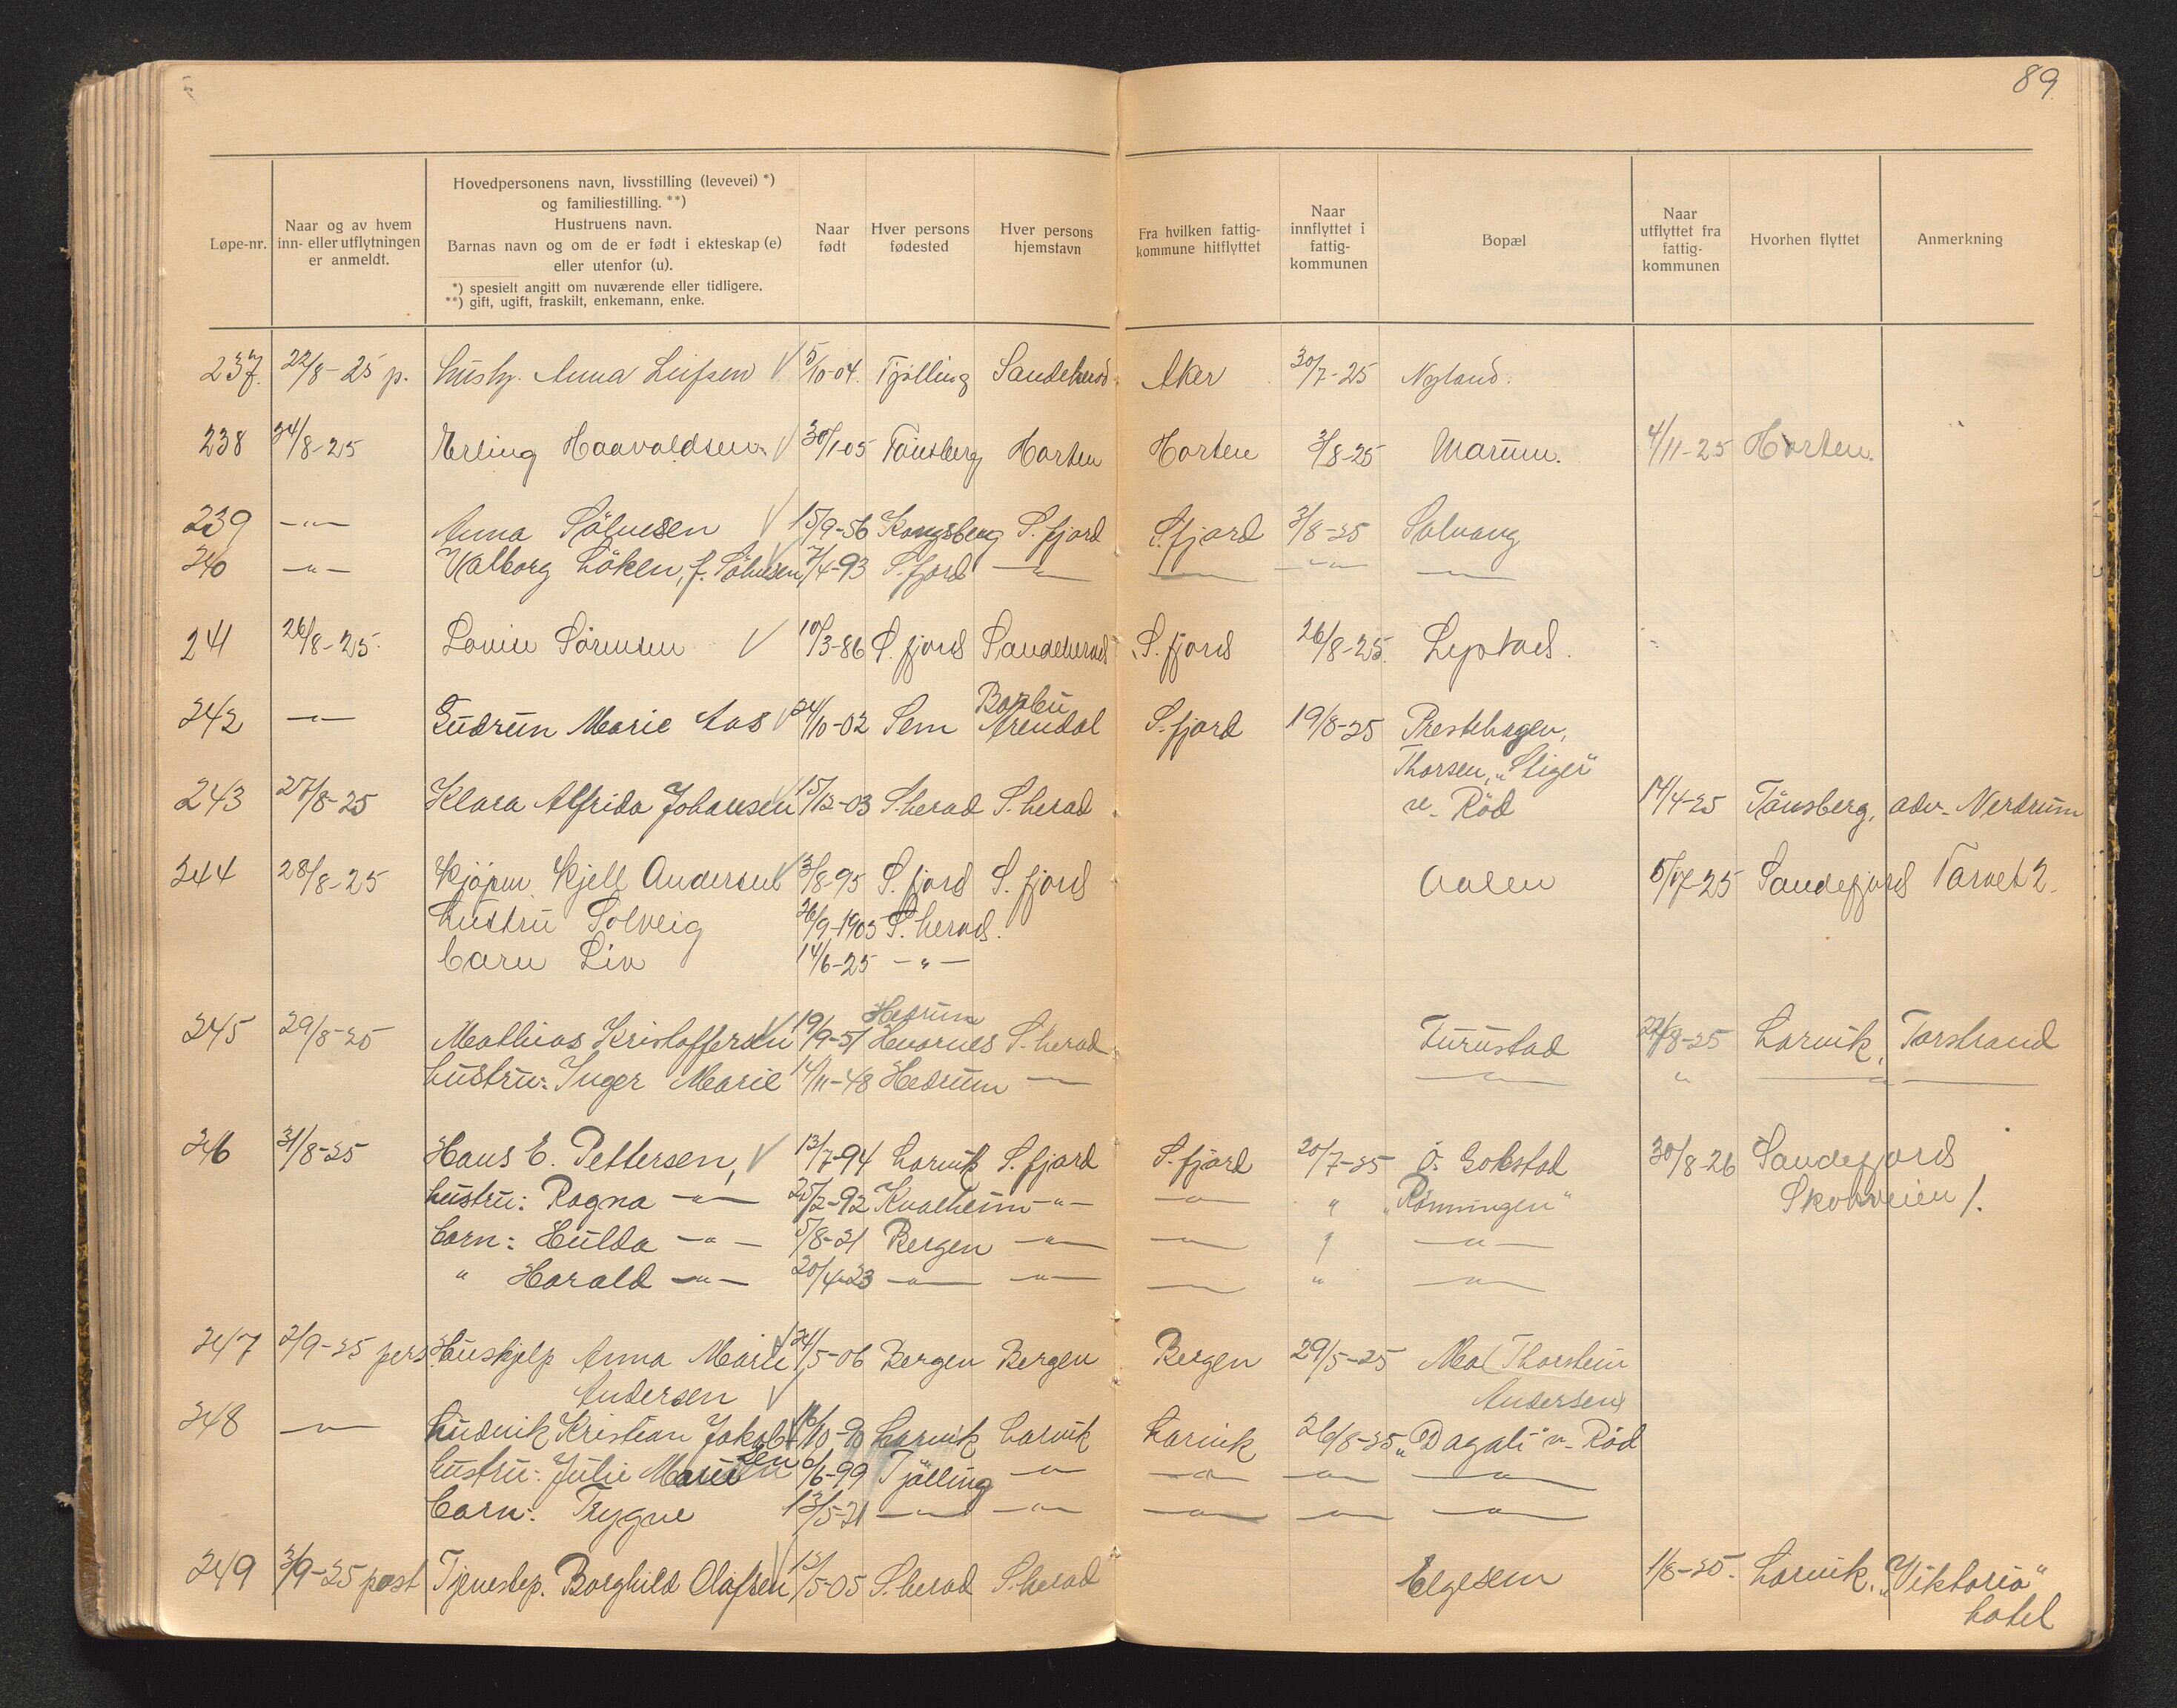 89.
Løpe-nr.
Naar og av hvem
inn- eller utflytningen
er anmeldt.
Hovedpersonens navn, livsstilling (levevei) *)
og familiestilling. **)
Hustruens navn.
Barnas navn og om de er født i ekteskap (e)
eller utenfor (u).
*) spesielt angitt om nuværende eller tidligere.
**) gift, ugift, fraskilt, enkemann, enke.
Naar
født
Hver persons
fødested
Hver persons
hjemstavn
Fra hvilken fattig-
kommune hitflyttet
Naar
innflyttet i
fattig-
kommunen
Bopæl
Naar
utflyttet fra
fattig-
kommunen
Hvorhen flyttet
Anmerkning
237. 22/8-25 p. Anna Leifsen 5/10-04. Tjølling Sandeherad Aker 30/7-25 Nyland.
238 24/8-25 Erling Haavaldsen 30/1-05 Tönsberg Horten Horten 3/8-25 Marum. 4/11-25 Horten.
239 -"- Anna Sölvesen 15/9-56 Kongsberg S.fjord S.fjord 3/8-25 Solvang
240 -"- Valborg Löken, f. Sölvesen 7/4-93 S.fjord -"-
241 26/8-25. Lovise Sörensen 10/3-86 S.fjord Sandeherad S.fjord 26/8-25. Lystad.
242 -"- Gudrun Marie Aas 24/10-02 Sem Barbu Arendal S.fjord 19/8-25 Prestehagen,
Thorsen, "Stiger"
243 27/8-25 Klara Alfrida Johansen 15/12-03 S.herad S.herad v. Röd 14/4-25 Tönsberg, adv. Nerdrum
244 28/8-25 Kjöpm. Kjell Andersen 3/8-95 S.fjord S.fjord Aasen Sandefjord Torvet 2.
Hustru Solveig 26/9-1903 S.herad.
barn Liv 14/6-25 -"-
Hedrum
245 29/8-25 Mathias Kristoffersen 19/9-51 S.herad Furustad 27/8-25 Larvik, Torstrand
hustru: Inger Marie 14/11-48 Hedrum -"- "
246 31/8-25 Hans E. Pettersen, 13/7-94 Larvik S.fjord S.fjord 20/7-25 Ö. Gokstad 30/8-26 Sandefjord
hustru: Ragna -"- 25/2-92 Kvalheim -"- -"- " "Rönningen" Skovveien 1.
barn: Hulda -"- 5/8-21 Bergen -"- -"-
" Harald -"- 20/4-23 -"- -"- "
247 2/9-25 pers Huskjelp Anna Marie 24/5-06 Bergen Bergen Bergen 29/5-25 Mo (Thorstein
Andersen Andersen)
248 -"- Ludvik Kristian Jakob-
sen 16/10-90 Larvik Larvik Larvik 26/8-25 "Dagali" v. Röd
hustru: Julie Marie 6/6-99 Tjölling -"- -"- -"- -"-
barn: Trygve 13/5-21 -"- -"- -"- -"- -"-
249 3/9-25 post Tjenestep. Borghild Olafsen 13/5-05 S.herad S.herad Elgesem 1/8-25. Larvik, "Viktoria"
hotel